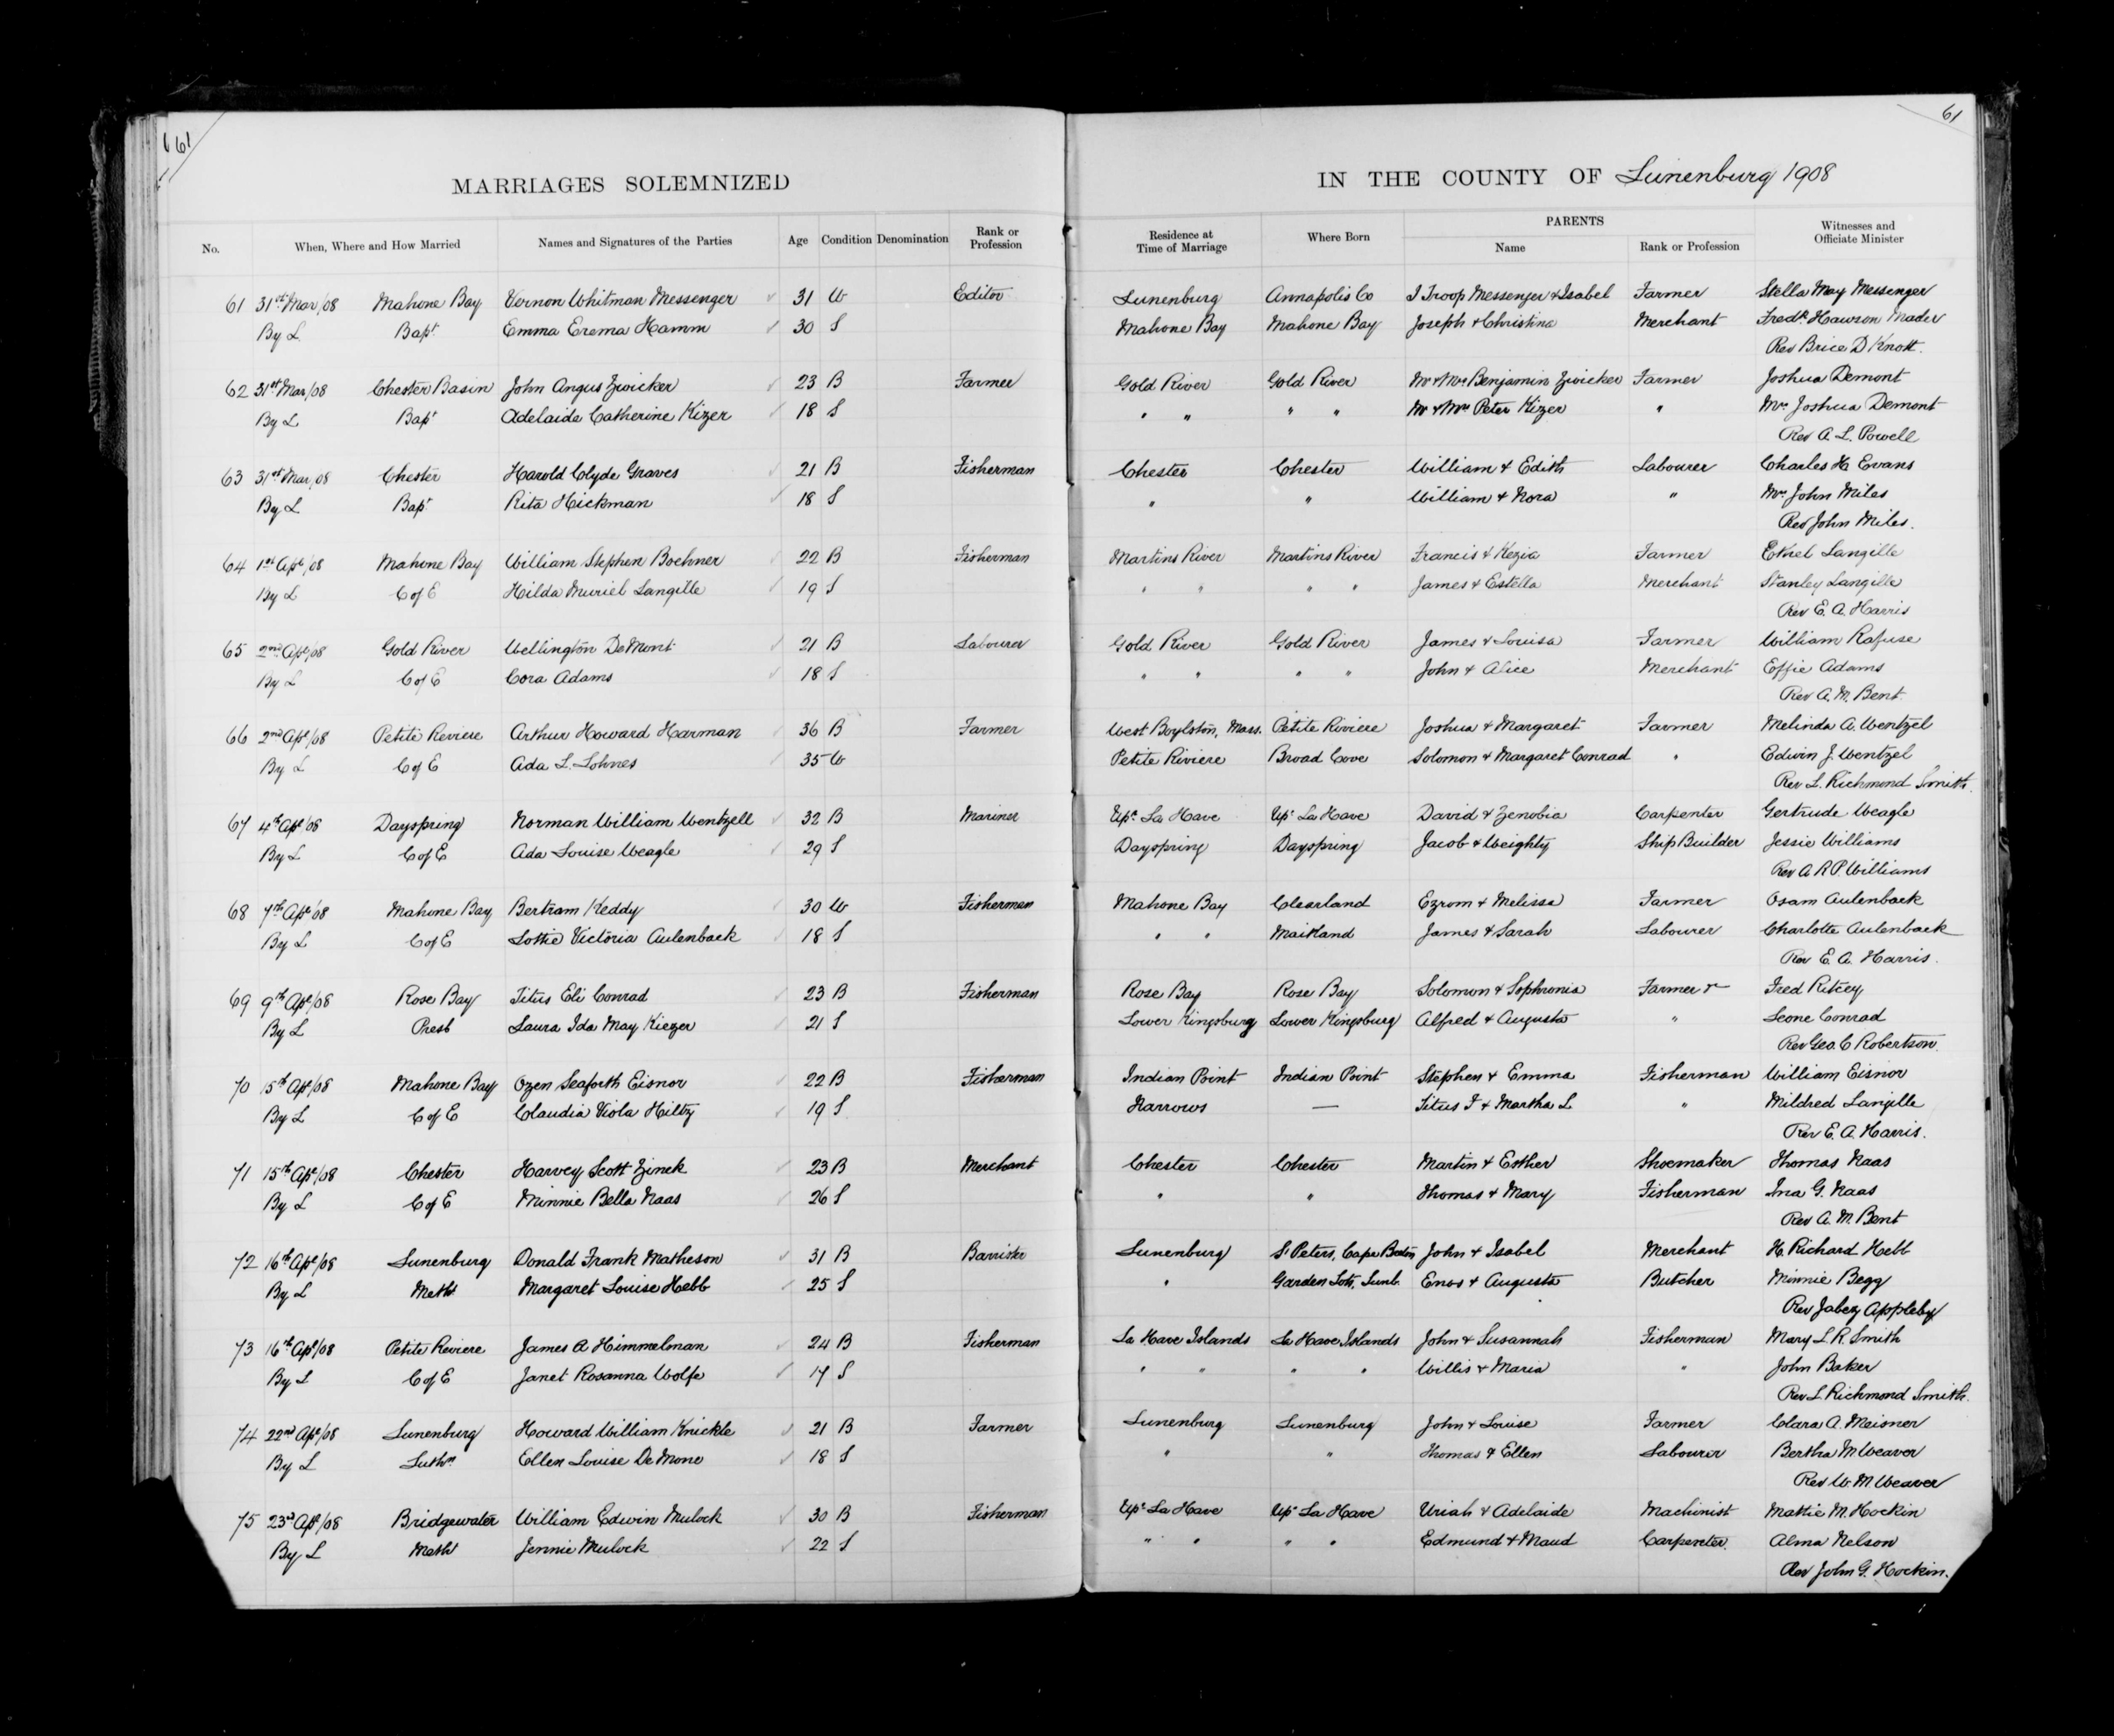 61
61
MARRIAGES SOLEMNIZED
IN THE COUNTY OF Lunenburg 1908
No. When, Where and How Married Names and Signatures of the Parties Age Condition Denomination Rank or Profession Residence at Time of Marriage Where Born PARENTS Name Rank or Profession Witnesses and Officiate Minister
61 31st Mar/08 Mahone Bay Vernon Whitman Messenger 31 W Editor Lunenburg Annapolis Co J Troop Messenger & Isabel Farmer Stella May Messenger
By L Bapt Emma Erema Hamm 30 S Mahone Bay Mahone Bay Joseph & Christina Merchant Fredk Hawson Mader
Rev Brice D Knott.
62 31st Mar/08 Chester Basin John Angus Zwicker 23 B Farmer Gold River Gold River Mr & Mrs Benjamin Zwicker Farmer Joshua Demont
By L Bapt Adelaide Catherine Kizer 18 S " " " " Mr & Mrs Peter Kizer " Mrs Joshua Demont
Rev A. L. Powell
63 31st Mar/08 Chester Harold Clyde Graves 21 B Fisherman Chester Chester William & Edith Labourer Charles H Evans
By L Bapt Rita Hickman 18 S " " William & Nora " Mrs John Miles
Rev John Miles.
64 1st Apl/08 Mahone Bay William Stephen Boehner 22 B Fisherman Martins River Martins River Francis & Kezia Farmer Ethel Langille
By L C of E Hilda Muriel Langille 19 S " " " " James & Estella Merchant Stanley Langille
Rev E. A. Harris
65 2nd Apl/08 Gold River Wellington DeMont 21 B Labourer Gold River Gold River James & Louisa Farmer William Rafuse
By L C of E Cora Adams 18 S " " " " John & Alice Merchant Effie Adams
Rev A. M. Bent
66 2nd Apl/08 Petite Reviere Arthur Howard Harman 36 B Farmer West Boylston, Mass. Petite Riviere Joshua & Margaret Farmer Melinda A. Wentzel
By L C of E Ada L. Lohnes 35 W Petite Riviere Broad Cove Solomon & Margaret Conrad " Edwin J. Wentzel
Rev L. Richmond Smith.
67 4th Apl/08 Dayspring Norman William Wentzell 32 B Mariner Upr La Have Upr La Have David & Zenobia Carpenter Gertrude Weagle
By L C of E Ada Louise Weagle 29 S Dayspring Dayspring Jacob & Weighty Ship Builder Jessie Williams
Rev A R P Williams
68 7th Apl/08 Mahone Bay Bertram Keddy 30 W Fisherman Mahone Bay Clearland Ezrom & Melissa Farmer Osam Aulenback
By L C of E Lottie Victoria Aulenback 18 S " " Maitland James & Sarah Labourer Charlotte Aulenback
Rev E. A. Harris.
69 9th Apl/08 Rose Bay Titus Eli Conrad 23 B Fisherman Rose Bay Rose Bay Solomon & Sophronia Farmer Fred Ritcey
By L Presb Laura Ida May Kiezer 21 S Lower Kingsburg Lower Kingsburg Alfred & Augusta " Leone Conrad
Rev Geo. C Robertson.
70 15th Apl/08 Mahone Bay Ozen Seaforth Eisnor 22 B Fisherman Indian Point Indian Point Stephen & Emma Fisherman William Eisnor
By L C of E Claudia Viola Hiltz 19 S. Narrows — Titus F & Martha L " Mildred Langille
Rev E. A. Harris.
71 15th Apl/08 Chester Harvey Scott Zinck 23 B Merchant Chester Chester Martin & Esther Shoemaker Thomas Naas
By L C of E Minnie Bella Naas 26 S " " Thomas & Mary Fisherman Ina G. Naas
Rev A. M. Bent
72 16th Apl/08 Lunenburg Donald Frank Matheson 31 B Barrister Lunenburg St Peters, Cape Breton John & Isabel Merchant H. Richard Hebb
By L Meth Margaret Louise Hebb 25 S " Garden Lots, Lunb. Enos & Augusta Butcher Minnie Begg
Rev Jabez Appleby
73 16th Apl/08 Petite Reviere James A Himmelman 24 B Fisherman La Have Islands La Have Islands John & Susannah Fisherman Mary L R. Smith
By L C of E Janet Rosanna Wolfe 17 S " " " " Willis & Maria " John Baker
Rev L. Richmond Smith.
74 22nd Apl/08 Lunenburg Howard William Knickle 21 B Farmer Lunenburg Lunenburg John & Louise Farmer Clara A. Meisner
By L Luthn Ellen Louise DeMone 18 S " " Thomas & Ellen Labourer Bertha M Weaver
Rev W. M. Weaver
75 23rd Apl/08 Bridgewater William Edwin Mulock 30 B Fisherman Upr La Have Upr La Have Uriah & Adelaide Machinist Mattie M. Hockin
By L Meth Jennie Mulock 22 S " " " " Edmund & Maud Carpenter. Alma Nelson
Rev John G. Hockin.